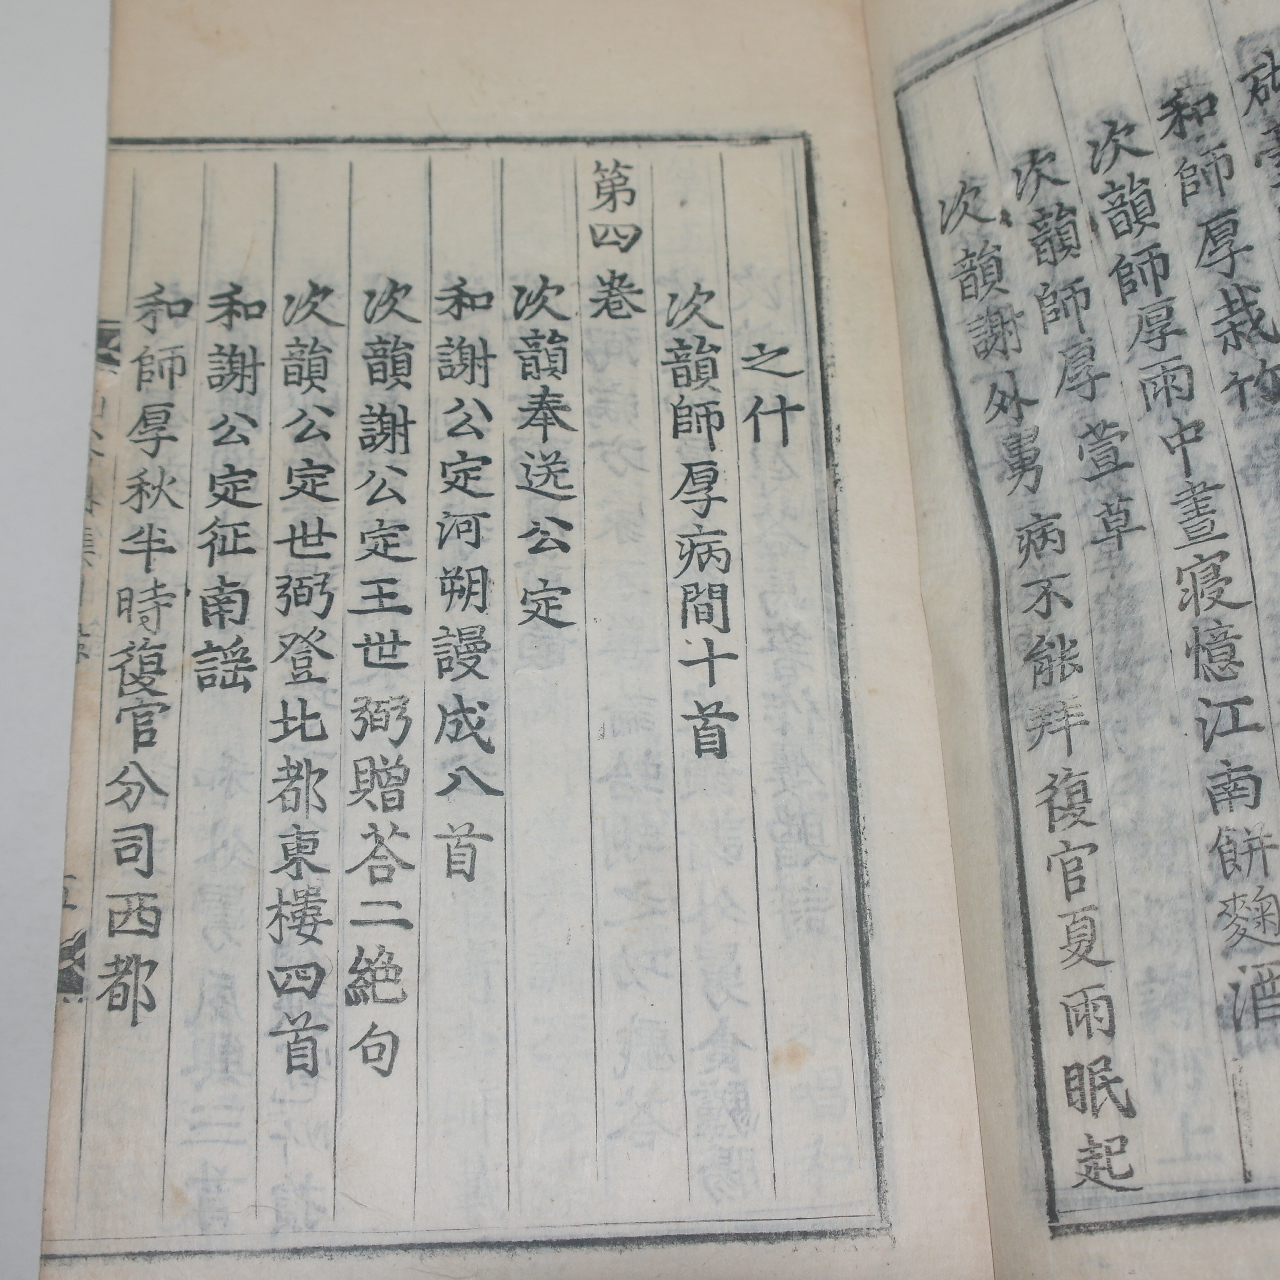 和師厚栽竹
次韻師厚雨中晝寢憶江南餅麴酒
次韻師厚萱草
次韻謝外舅病不能拜復官夏雨眠起
之什
次韻師厚病間十首
第四卷
次韻奉送公定
和謝公定河朔謾成八首
次韻謝公定王世弼贈荅二絕句
次韻公定世弼登北都東樓四首
和謝公定征南謡
和師厚秋半時復官分司西都